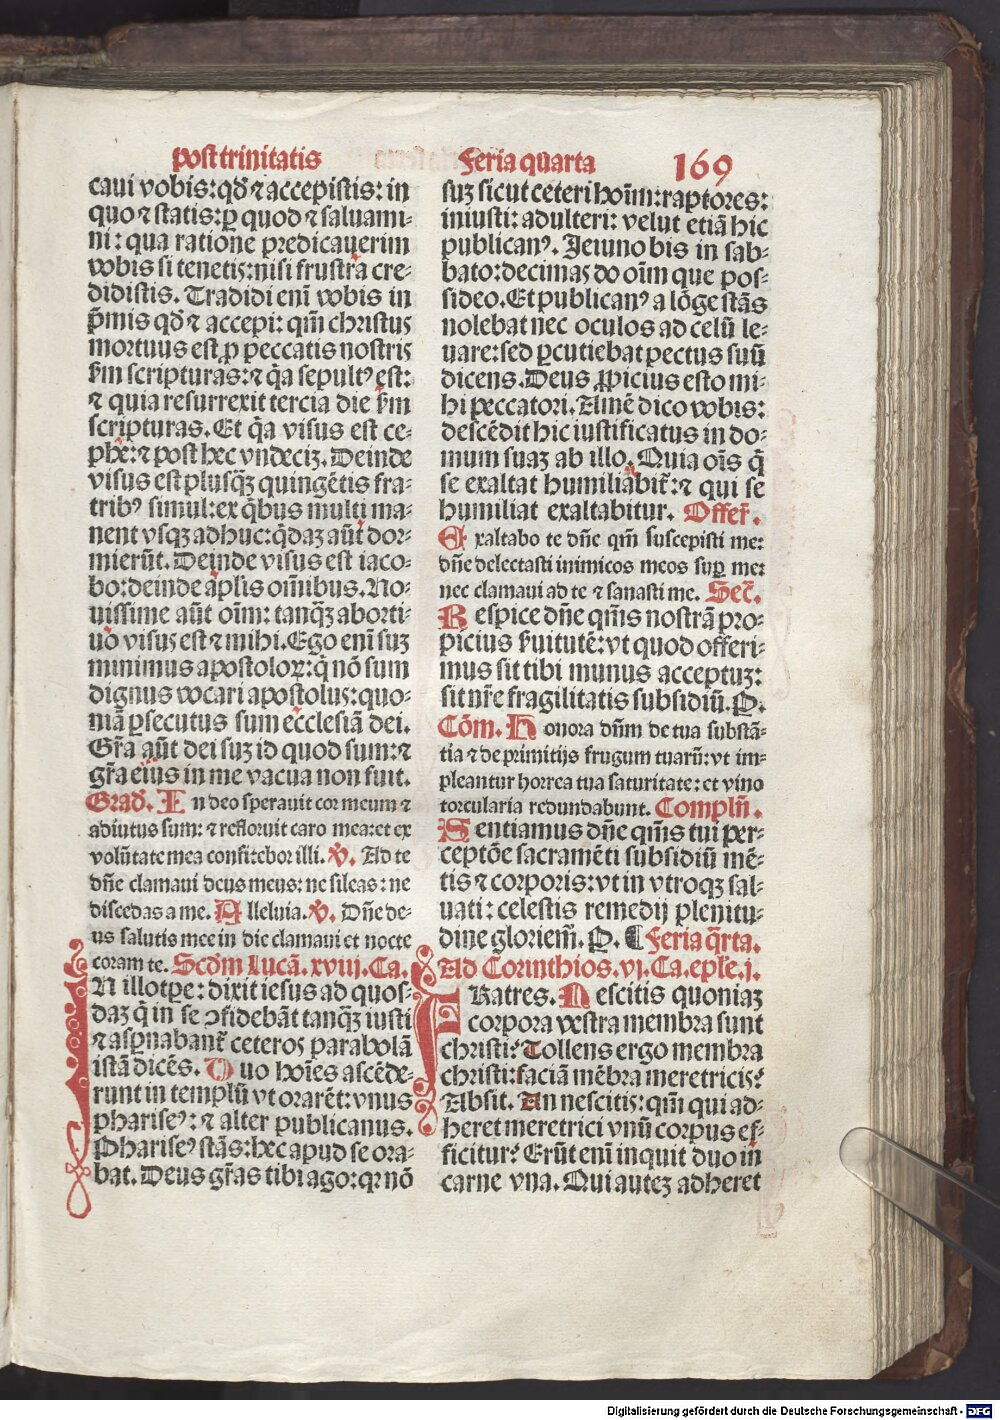 post trinitatis
Feria quarta
169
caui vobis: qđ ⁊ accepistis: in
quo ⁊ statis: ꝑ quod ⁊ saluami-
ni: qua ratione predicauerim
vobis si tenetis: nisi frustra cre-
didistis. Tradidi enī vobis in
p̄mis qđ ⁊ accepi: qm̄ christus
mortuus est ꝓ peccatis nostris
ẜm scripturas: ⁊ q̄a sepultꝰ est:
⁊ quia resurrexit tercia die ẜm
scripturas. Et q̄a visus est ce-
phe: ⁊ post hec vndeciꝫ. Deinde
visus est plusq̄ꝫ quingētis fra-
tribꝰ simul: ex q̄bus multi ma-
nent vsqꝫ adhuc: q̄daꝫ aūt dor-
mierūt. Deinde visus est iaco-
bo: deinde ap̄lis om̄ibus. No-
uissime aūt oīm: tanq̄ꝫ aborti-
uo visus est ⁊ mihi. Ego enī suꝫ
minimus apostoloꝝ: q̄ nō sum
dignus vocari apostolus: quo-
niā ꝑsecutus sum ecclesiā dei.
Gr̄a aūt dei suꝫ id quod sum: ⁊
gr̄a eius in me vacua non fuit.
Grad̄. In deo sperauit cor meum ⁊
adiutus sum: ⁊ refloruit caro mea: et ex
volūtate mea confitebor illi. ℣. Ad te
dn̄e clamaui deus meus: ne sileas: ne
discedas a me. Alleluia. ℣. Dn̄e de-
us salutis mee in die clamaui et nocte
coram te. Scd̄m Lucā. xviij. Ca.
IN illo tꝑe: dixit iesus ad quos-
daꝫ q̄ in se ꝯfidebāt tanq̄ꝫ iusti
⁊ asꝑnabanť ceteros parabolā
istā dicēs. Duo hoīes ascēde-
runt in templū vt orarēt: vnus
phariseꝰ: ⁊ alter publicanus.
Phariseꝰ stās: hec apud se ora-
bat. Deus gr̄as tibi ago: qꝛ nō
suꝫ sicut ceteri hoīm: raptores:
iniusti: adulteri: velut etiā hic
publicanꝰ. Ieiuno bis in sab-
bato: decimas do oīm que pos-
sideo. Et publicanꝰ a lōge stās
nolebat nec oculos ad celū le-
uare: sed ꝑcutiebat pectus suū
dicens. Deus ꝓpicius esto mi-
hi peccatori. Amē dico vobis:
descēdit hic iustificatus in do-
mum suaꝫ ab illo. Quia oīs q̄
se exaltat humiliabiť: ⁊ qui se
humiliat exaltabitur. Offer̄.
Exaltabo te dn̄e qm̄ suscepisti me:
dn̄e delectasti inimicos meos suꝑ me:
nec clamaui ad te ⁊ sanasti me. Sec̄.
Respice dn̄e qm̄s nostrā pro-
picius ẜuitutē: vt quod offeri-
mus sit tibi munus acceptuꝫ:
sit nr̄e fragilitatis subsidiū. P.
Cōm. Honora dn̄m de tua substā-
tia ⁊ de primitijs frugum tuarū: vt im-
pleantur horrea tua saturitate: et vino
torcularia redundabunt. Compln̄.
Sentiamus dn̄e qm̄s tui per-
ceptōe sacramēti subsidiū mē-
tis ⁊ corporis: vt in vtroqꝫ sal-
uati: celestis remedij plenitu-
dine gloriem̄. P. ¶ Feria q̄rta.
Ad Corinthios. vj. Ca. epl̄e. j.
FRatres. Nescitis quoniaꝫ
corpora vestra membra sunt
christi? Tollens ergo membra
christi: faciā mēbra meretricis?
Absit. An nescitis: qm̄ qui ad-
heret meretrici vnū corpus ef-
ficitur? Erūt enī inquit duo in
carne vna. Qui auteꝫ adheret
Digitalisierung gefördert durch die Deutsche Forschungsgemeinschaft - DFG